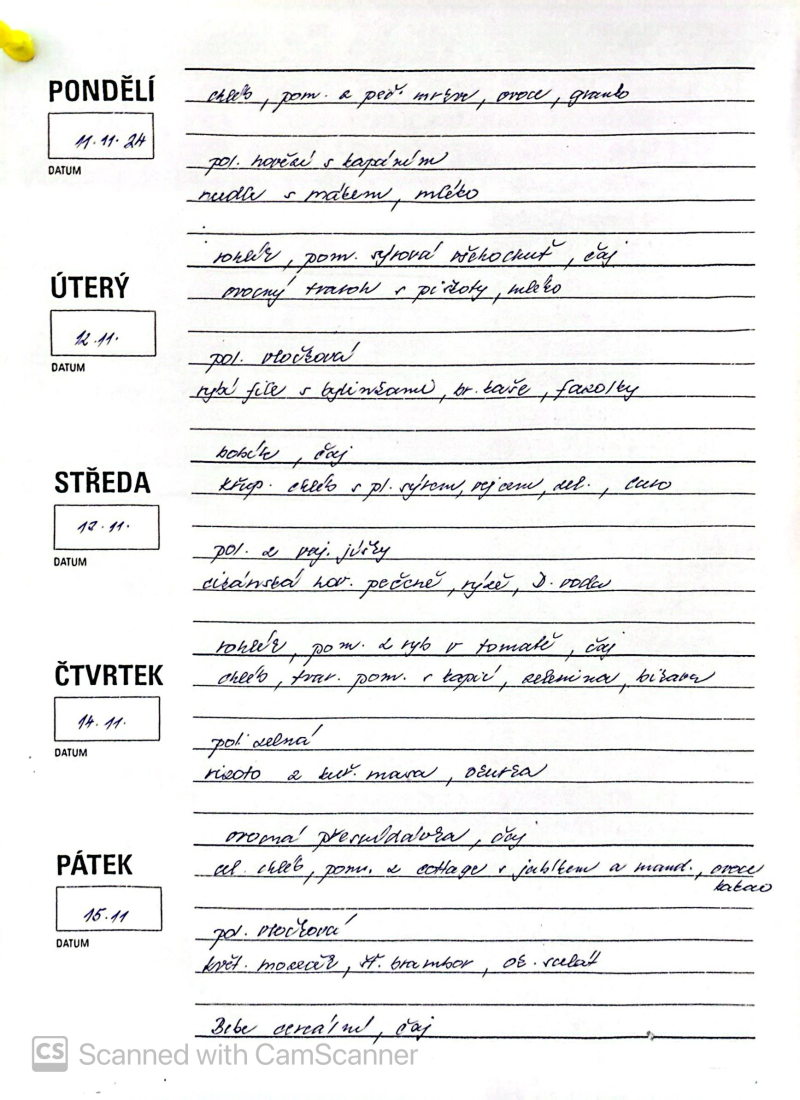 PONDĚLÍ
chléb, pom. z peč. mrkve, ovoce, granko
11.11.24
DATUM
pol. hovězí s kapáním
nudle s mákem, mléko
rohlík, pom. sýrová všehochuť, čaj
ÚTERÝ
ovocný tvaroh s piškoty, mléko
12.11.
DATUM
pol. vločková
rybí file s bylinkami, br. kaše, fazolky
bobík, čaj
STŘEDA
křup. chléb s pl. sýrem, vejcem, zel., caro
13.11.
DATUM
pol. z vaj. jíšky
cikánská hov. pečeně, rýže, D. voda
rohlík, pom. z ryb v tomatě, čaj
ČTVRTEK
chléb, tvar. pom. s kapií, zelenina, bikava
14.11.
DATUM
pol. zelná
rizoto z kuř. masa, okurka
ovocná přesnídávka, čaj
PÁTEK
cel. chléb, pom. z cottage s jablkem a mand., ovoce
kakao
15.11
DATUM
pol. vločková
květ. mozeček, šť. brambor, ok. salát
Bebe cereální, čaj
CS Scanned with CamScanner